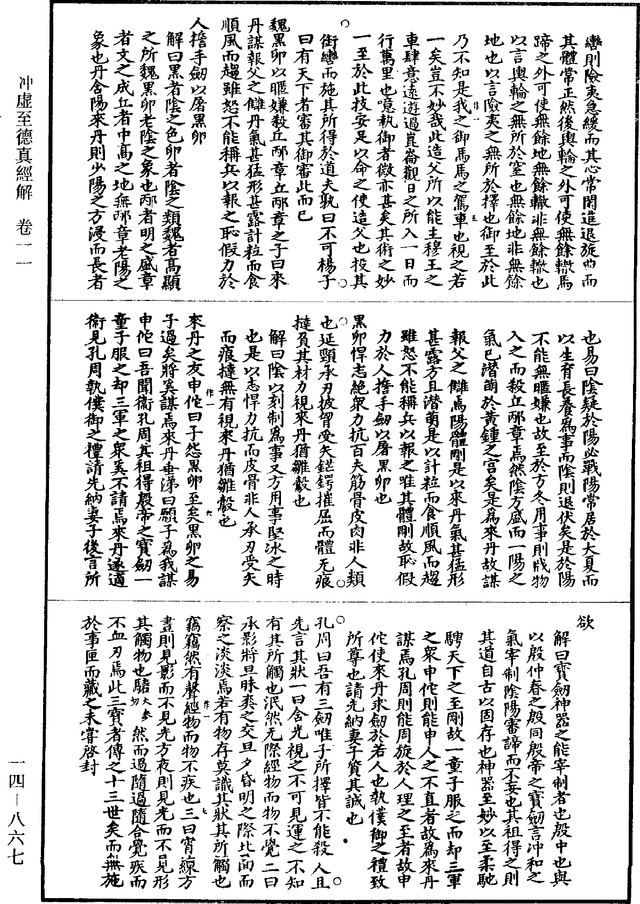 轡則險夷急緩而其心常閑進退旋曲而
其體常正然後輿輪之外可使無餘轍馬
蹄之外可使無餘地無餘轍非無餘轍也
以言輿輪之無所於窒也無餘地非無餘
地也以言險夷之無所於擇也御至於此
乃不知是我之御馬馬之駕車也視之若
一矣豈不妙哉此造父所以能主穆王之
車肆意遠遊過崑崙觀日之所入一日而
行萬里也噫執御者微亦甚矣其術之妙
一至於此技安足以命之使造父也投其
銜轡而施其所得於道夫孰曰不可楊子
曰有天下者審其御審此而已
魏黑卯以暱嫌殺丘邴章丘邴章之子曰來
丹謀報父之讎丹氣甚猛形甚露計粒而食
順風而趨雖怒不能稱兵以報之恥假力於
人誓手劍以屠黑卯
解曰黑者陰之色卯者陰之類魏者高顯
之所魏黑卯老陰之象也邴者明之盛章
者文之成丘者中高之地無邴章老陽之
象也丹含陽來丹則少陽之方浸而長者
也易曰陰疑於陽必戰陽常居於大夏而
以生育長養為事而陰則退伏矣是於陽
不能無暱嫌也故至於方冬用事則戕物
入之而殺丘邴章焉然陰方盛而一陽之
氣已潛萌於黃鍾之宮矣是為來丹故謀
報父之讎焉陽體剛是以來丹氣甚猛形
甚露方且潛萌是以計粒而食順風而趨
雖怒不能稱兵以報之唯其體剛故恥假
力於人誓手劍以屠黑卯也
黑卯悍志絕眾力抗百夫筋骨皮肉非人類
也延頸承刃披胷受矢鋩鍔摧屈而體無痕
撻負其材力視來丹猶雛鷇也
解曰陰以刻制為事又方用事堅冰之時
也是以志悍力抗而皮骨非人承刃受矢
而痕撻無有視來丹猶雛鷇也
來丹之友申佗曰子怨黑卯至矣黑卯之易
子過矣將奚謀焉來丹垂涕曰願子為我謀
申佗曰吾聞衛孔周其祖得殷帝之寶劍一
童子服之却三軍之眾奚不請焉來丹遂適
衛見孔周執僕御之禮請先納妻子後言所
欲
解曰寶劍神器之能宰制者也殷中也與
以殷仲春之殷同殷帝之寶劍言冲和之
氣宰制陰陽審諦而不妄也其祖得之則
其道自古以固存也神器至妙以至柔馳
騁天下之至剛故一童子服之而却三軍
之眾申佗則能申人之不直者故為來丹
謀焉孔周則能周旋於人理之至者故申
佗使來丹求劍於若人也執僕御之禮致
所尊也請先納妻子質其誠也
孔周曰吾有三劍唯子所擇皆不能殺人且
先言其狀一曰含光視之不可見運之不知
有其所觸也泯然無際經物而物不覺二曰
承影將旦昧爽之交旦夕昏明之際北面而
察之淡淡焉若有物存莫識其狀其所觸也
竊竊然有聲經物而物不疾也三曰宵練方
晝則見影而不見光方夜則見光而不見形
其觸物也騞然而過隨過隨合覺疾而
不血刃焉此三寶者傳之十三世矣而無施
於事匣而藏之未嘗啓封
冲虛至德真經解 卷一一
一四—八六七